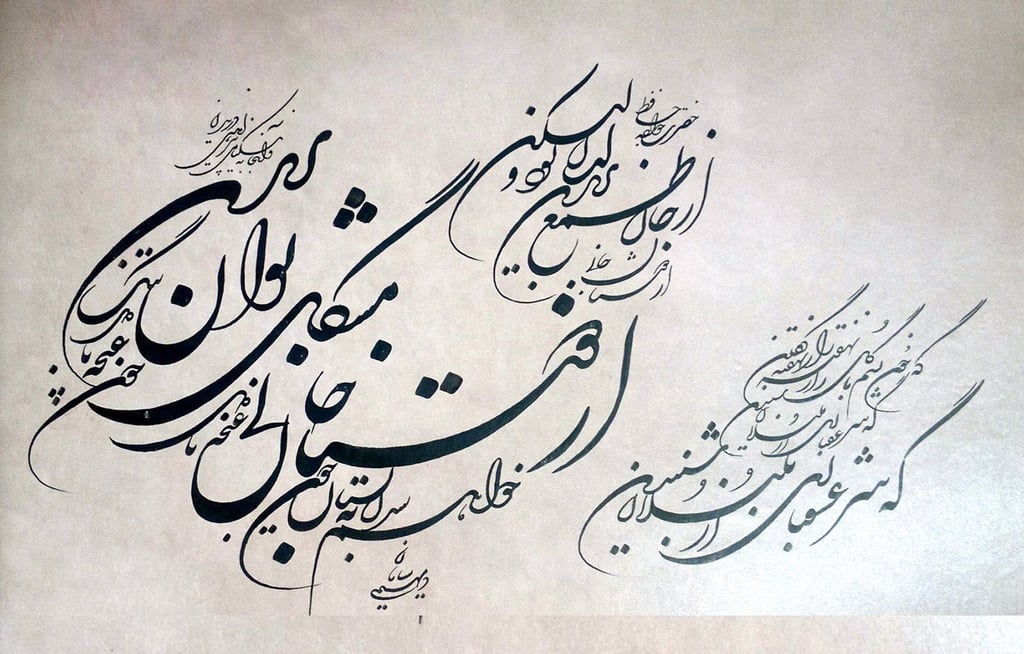 حضرت خواجه حافظ
از جان طمع بریدن آسان بود ولیکن
از دوستان جانی
از دوستان جانی مشکل توان بریدن
خواهم شدن به بستان چون غنچه با دل تنگ
وانجا به نیکنامی پیراهنی دریدن
گه چون نسیم با گل راز نهفته گفتن
گه سر عشقبازی از بلبلان شنیدن
گه سر عشقبازی از بلبلان شنیدن